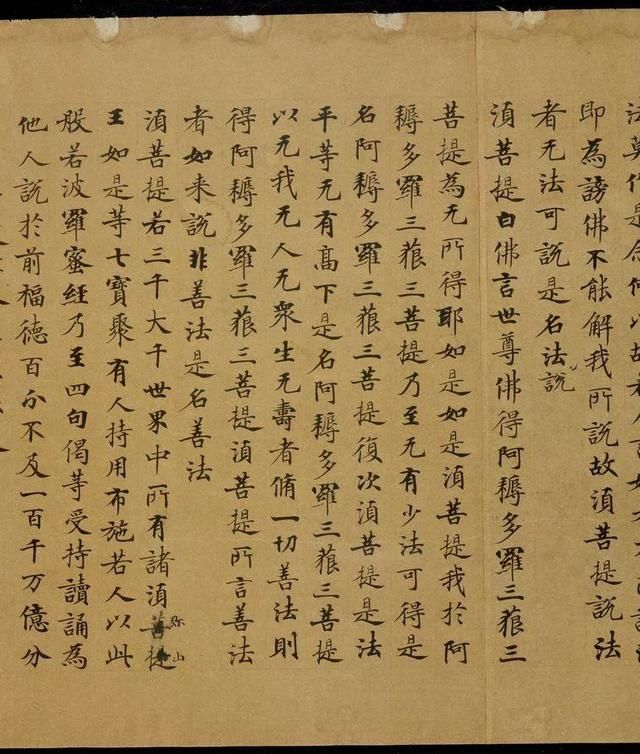 法莫作是念何以故若人言如来有所說
即為謗佛不能解我所說故湏菩提說法
者无法可說是名法說
湏菩提白佛言世尊佛得阿耨多羅三藐三
菩提為无所得耶如是如是湏菩提我於阿
耨多羅三藐三菩提乃至无有少法可得是
名阿耨多羅三藐三菩提復次湏菩提是法
平等无有髙下是名阿耨多羅三藐三菩提
以无我无人无衆生无壽者脩一切善法則
得阿耨多羅三藐三菩提湏菩提所言善法
者如来說非善法是名善法
湏菩提若三千大千世界中所有諸湏菩提
弥山
王如是等七寶聚有人持用布施若人以此
般若波羅蜜經乃至四句偈等受持讀誦為
他人說於前福德百分不及一百千万億分